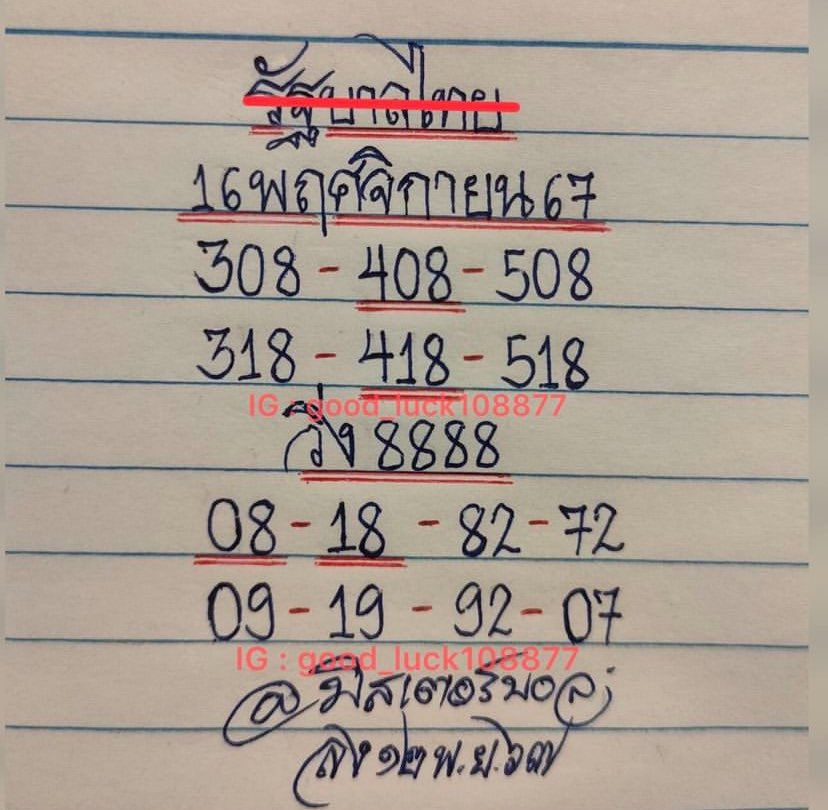 รัฐบาลไทย
16 พฤศจิกายน 67
308 - 408 - 508
318 - 418 - 518
IG : good_luck108877
วิ่ง 8888
08 - 18 - 82 - 72
09 - 19 - 92 - 07
IG : good_luck108877
@มิสเตอร์บอล
ลง ๑๒ พ.ย. ๖๗